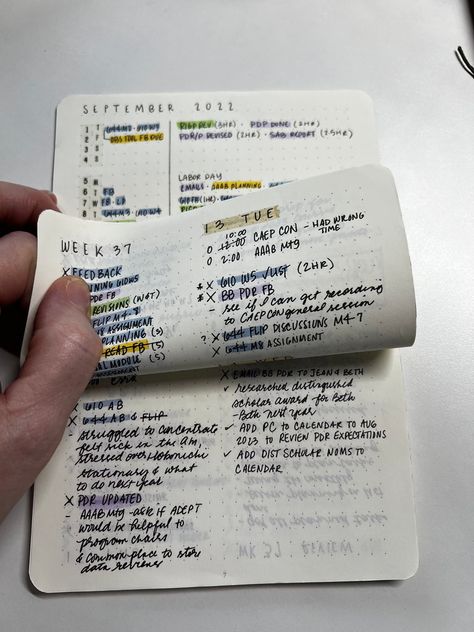 SEPTEMBER 2022
1 T 644 M3 · 610 W3
2 F FB DUE
3 S
4 S
5 M
6 T FB
7 W FB · LP
8 T
RISD REV (3HR) · PDP DONE (2HR)
PDR/P REVISED (2HR) · SAB REPORT (2.5HR)
LABOR DAY
EMAILS · AAAB PLANNING
WEEK 37
X FEEDBACK
PDR FB
REVISIONS
FLIP M7-8
M8 ASSIGNMENT
PLANNING (3)
READ FB (5)
MODULE (5)
13 TUE
10:00
O 12:00 CAEP CON - HAD WRONG
TIME
O 2:00 AAAB MTG
X 610 W5 ✓LIST (2HR)
X BB PDR FB
- see if I can get recording
to CAEP con general session
? X 644 FLIP DISCUSSIONS M4-7
X 644 M8 ASSIGNMENT
X 610 AB
X 644 AB & FLIP
- struggled to concentrate
felt sick in the AM,
stressed over Hobonichi
stationary & what
to do next year
X PDR UPDATED
- AAAB Mtg - ask if ADEPT
would be helpful to
program chairs
& common place to store
data reviews
X EMAIL BB PDR TO JEAN & BETH
✓ researched distinguished
scholar award for Beth
- Beth next year
✓ ADD PC TO CALENDAR TO AUG
2023 TO REVIEW PDR EXPECTATIONS
✓ ADD DIST SCHOLAR NOMS TO
CALENDAR